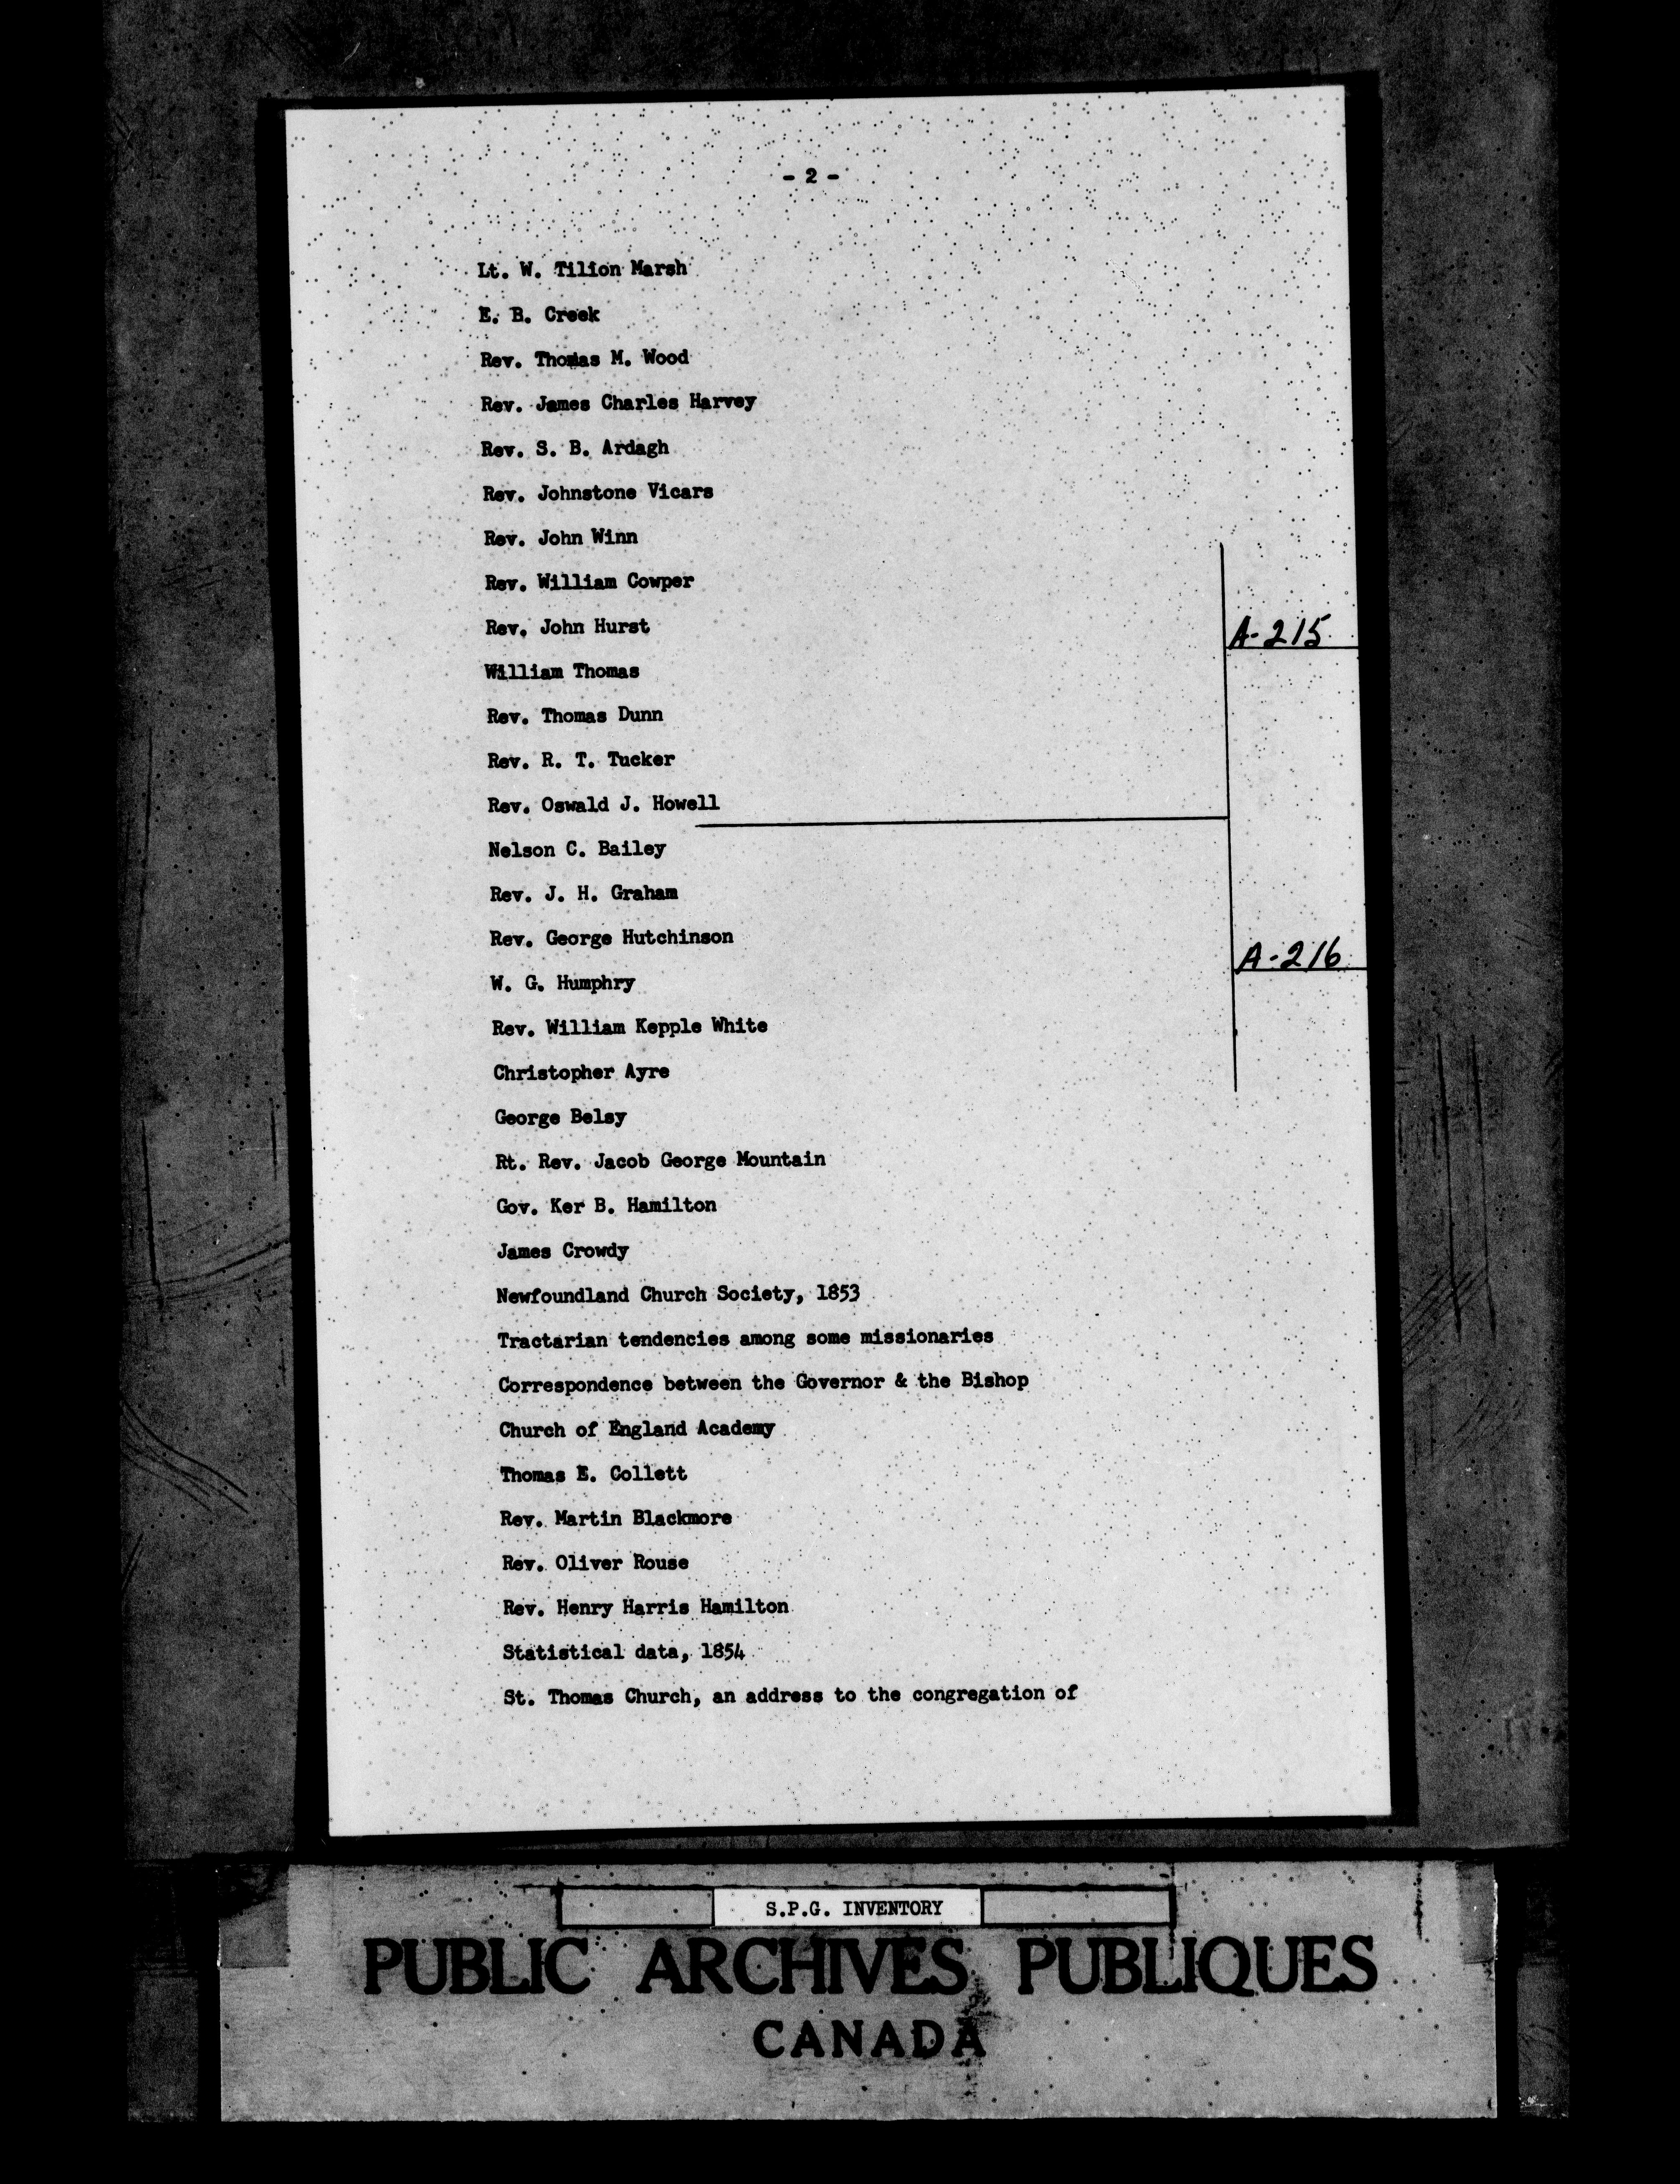 - 2 -
Lt. W. Tilion Marsh
E. B. Creek
Rev. Thomas M. Wood
Rev. James Charles Harvey
Rev. S. B. Ardagh
Rev. Johnstone Vicars
Rev. John Winn
Rev. William Cowper
Rev. John Hurst
A-215
William Thomas
Rev. Thomas Dunn
Rev. R. T. Tucker
Rev. Oswald J. Howell
Nelson C. Bailey
Rev. J. H. Graham
Rev. George Hutchinson
A-216
W. G. Humphry
Rev. William Kepple White
Christopher Ayre
George Belsy
Rt. Rev. Jacob George Mountain
Gov. Ker B. Hamilton
James Crowdy
Newfoundland Church Society, 1853
Tractarian tendencies among some missionaries
Correspondence between the Governor & the Bishop
Church of England Academy
Thomas E. Collett
Rev. Martin Blackmore
Rev. Oliver Rouse
Rev. Henry Harris Hamilton
Statistical data, 1854
St. Thomas Church, an address to the congregation of
S.P.G. INVENTORY
PUBLIC ARCHIVES PUBLIQUES
CANADA